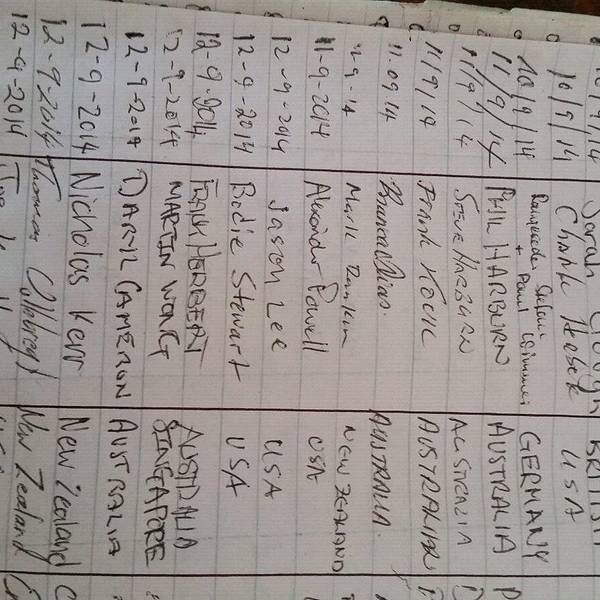 10/9/14 Sarah Clough BRITISH
10/9/14 Chank Hosek USA
10/9/14 Stefan + Paul Wimmer GERMANY
11/9/14 PHIL HARBURN AUSTRALIA
11/9/14 STEVE HARBURN AUSTRALIA
11/9/14 FRANK KOCIC AUSTRALIAN
11.09.14 AUSTRALIA.
11-9-14 Mark Rankin NEW ZEALAND
11-9-2014 Alexander Powell USA
12-9-2014 Jason Lee USA
12-9-2014 Bodie Stewart USA
12-9-2014 HERBERT AUSTRALIA
12-9-2014 MARTIN WONG SINGAPORE
12-9-2014 DARYL CAMERON AUSTRALIA
12-9-2014 Nicholas Kerr New Zealand
12-9-2014 Thomas New Zealand
12-9-2014